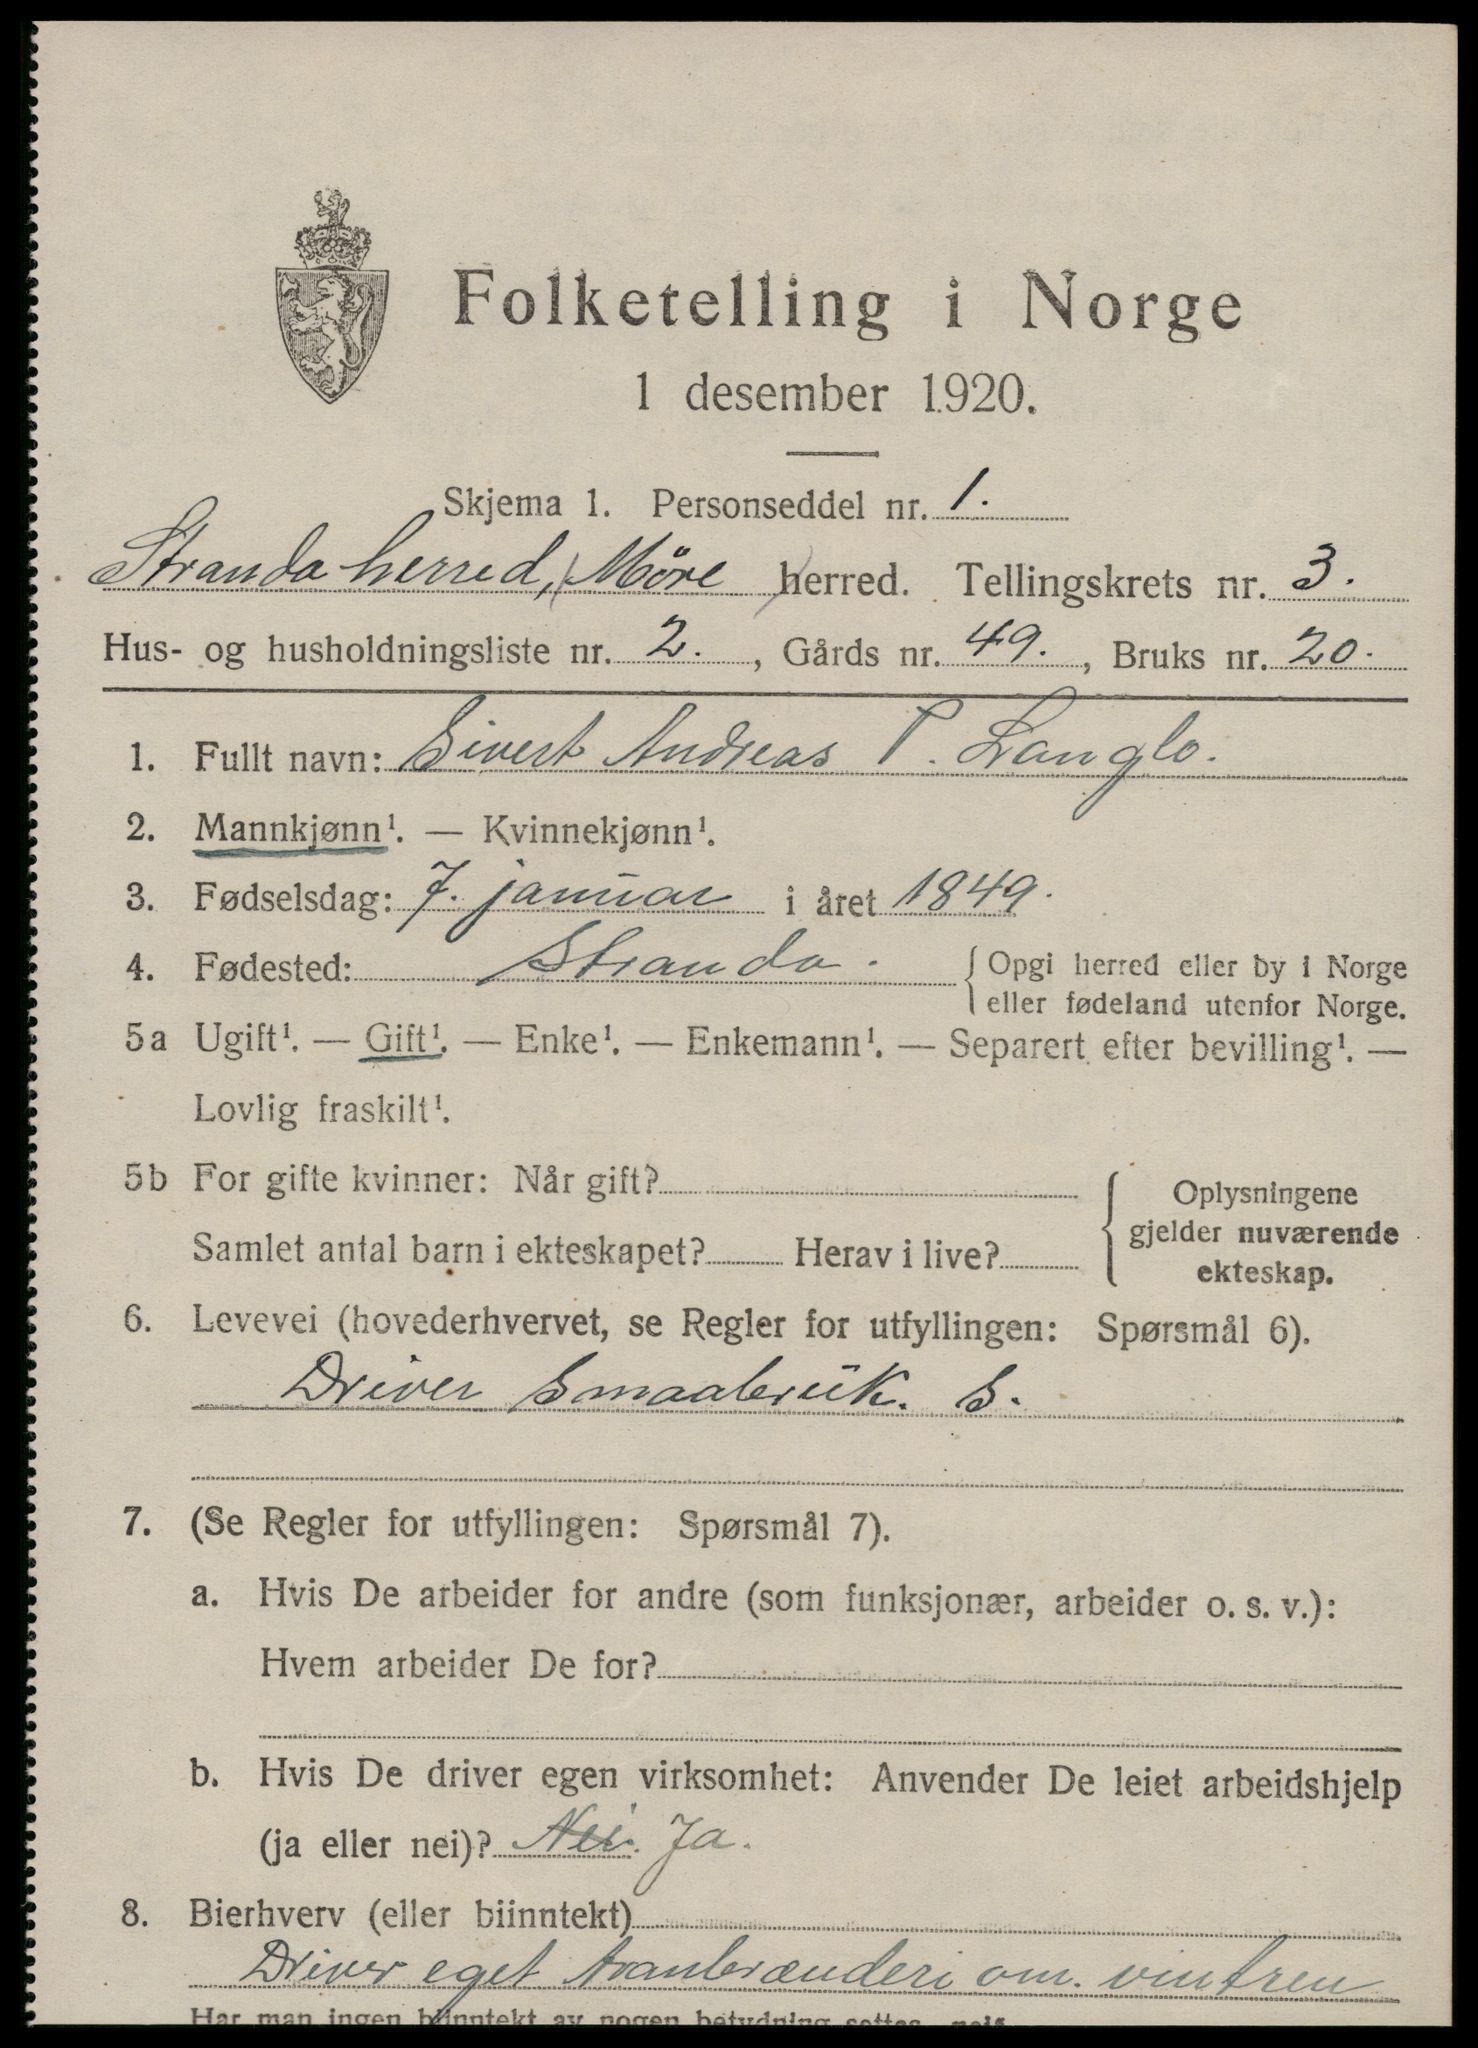 Folketelling i Norge
1 desember 1920.
Skjema 1. Personseddel nr. 1.
Stranda herred, Möre herred. Tellingskrets nr. 3.
Hus- og husholdningsliste nr. 2., Gårds nr. 49., Bruks nr. 20.
1. Fullt navn: Sivert Andreas P. Langlo.
2. Mannkjønn¹. — Kvinnekjønn¹.
3. Fødselsdag: 7. januar i året 1849.
4. Fødested: Stranda. Opgi herred eller by i Norge
eller fødeland utenfor Norge.
5a Ugift¹. — Gift¹. — Enke¹. — Enkemann¹. — Separert efter bevilling¹. —
Lovlig fraskilt¹.
5b For gifte kvinner: Når gift?
Samlet antal barn i ekteskapet? Herav i live?
Oplysningene
gjelder nuværende
ekteskap.
6. Levevei (hovederhvervet, se Regler for utfyllingen: Spørsmål 6).
Driver Smaabruk. S.
7. (Se Regler for utfyllingen: Spørsmål 7).
a. Hvis De arbeider for andre (som funksjonær, arbeider o. s. v.):
Hvem arbeider De for?
b. Hvis De driver egen virksomhet: Anvender De leiet arbeidshjelp
(ja eller nei)? Nei. Ja.
8. Bierhverv (eller biinntekt)
Driver eget tranbrænderi om vintren
Har man ingen biinntekt av nogen betydning settes nei